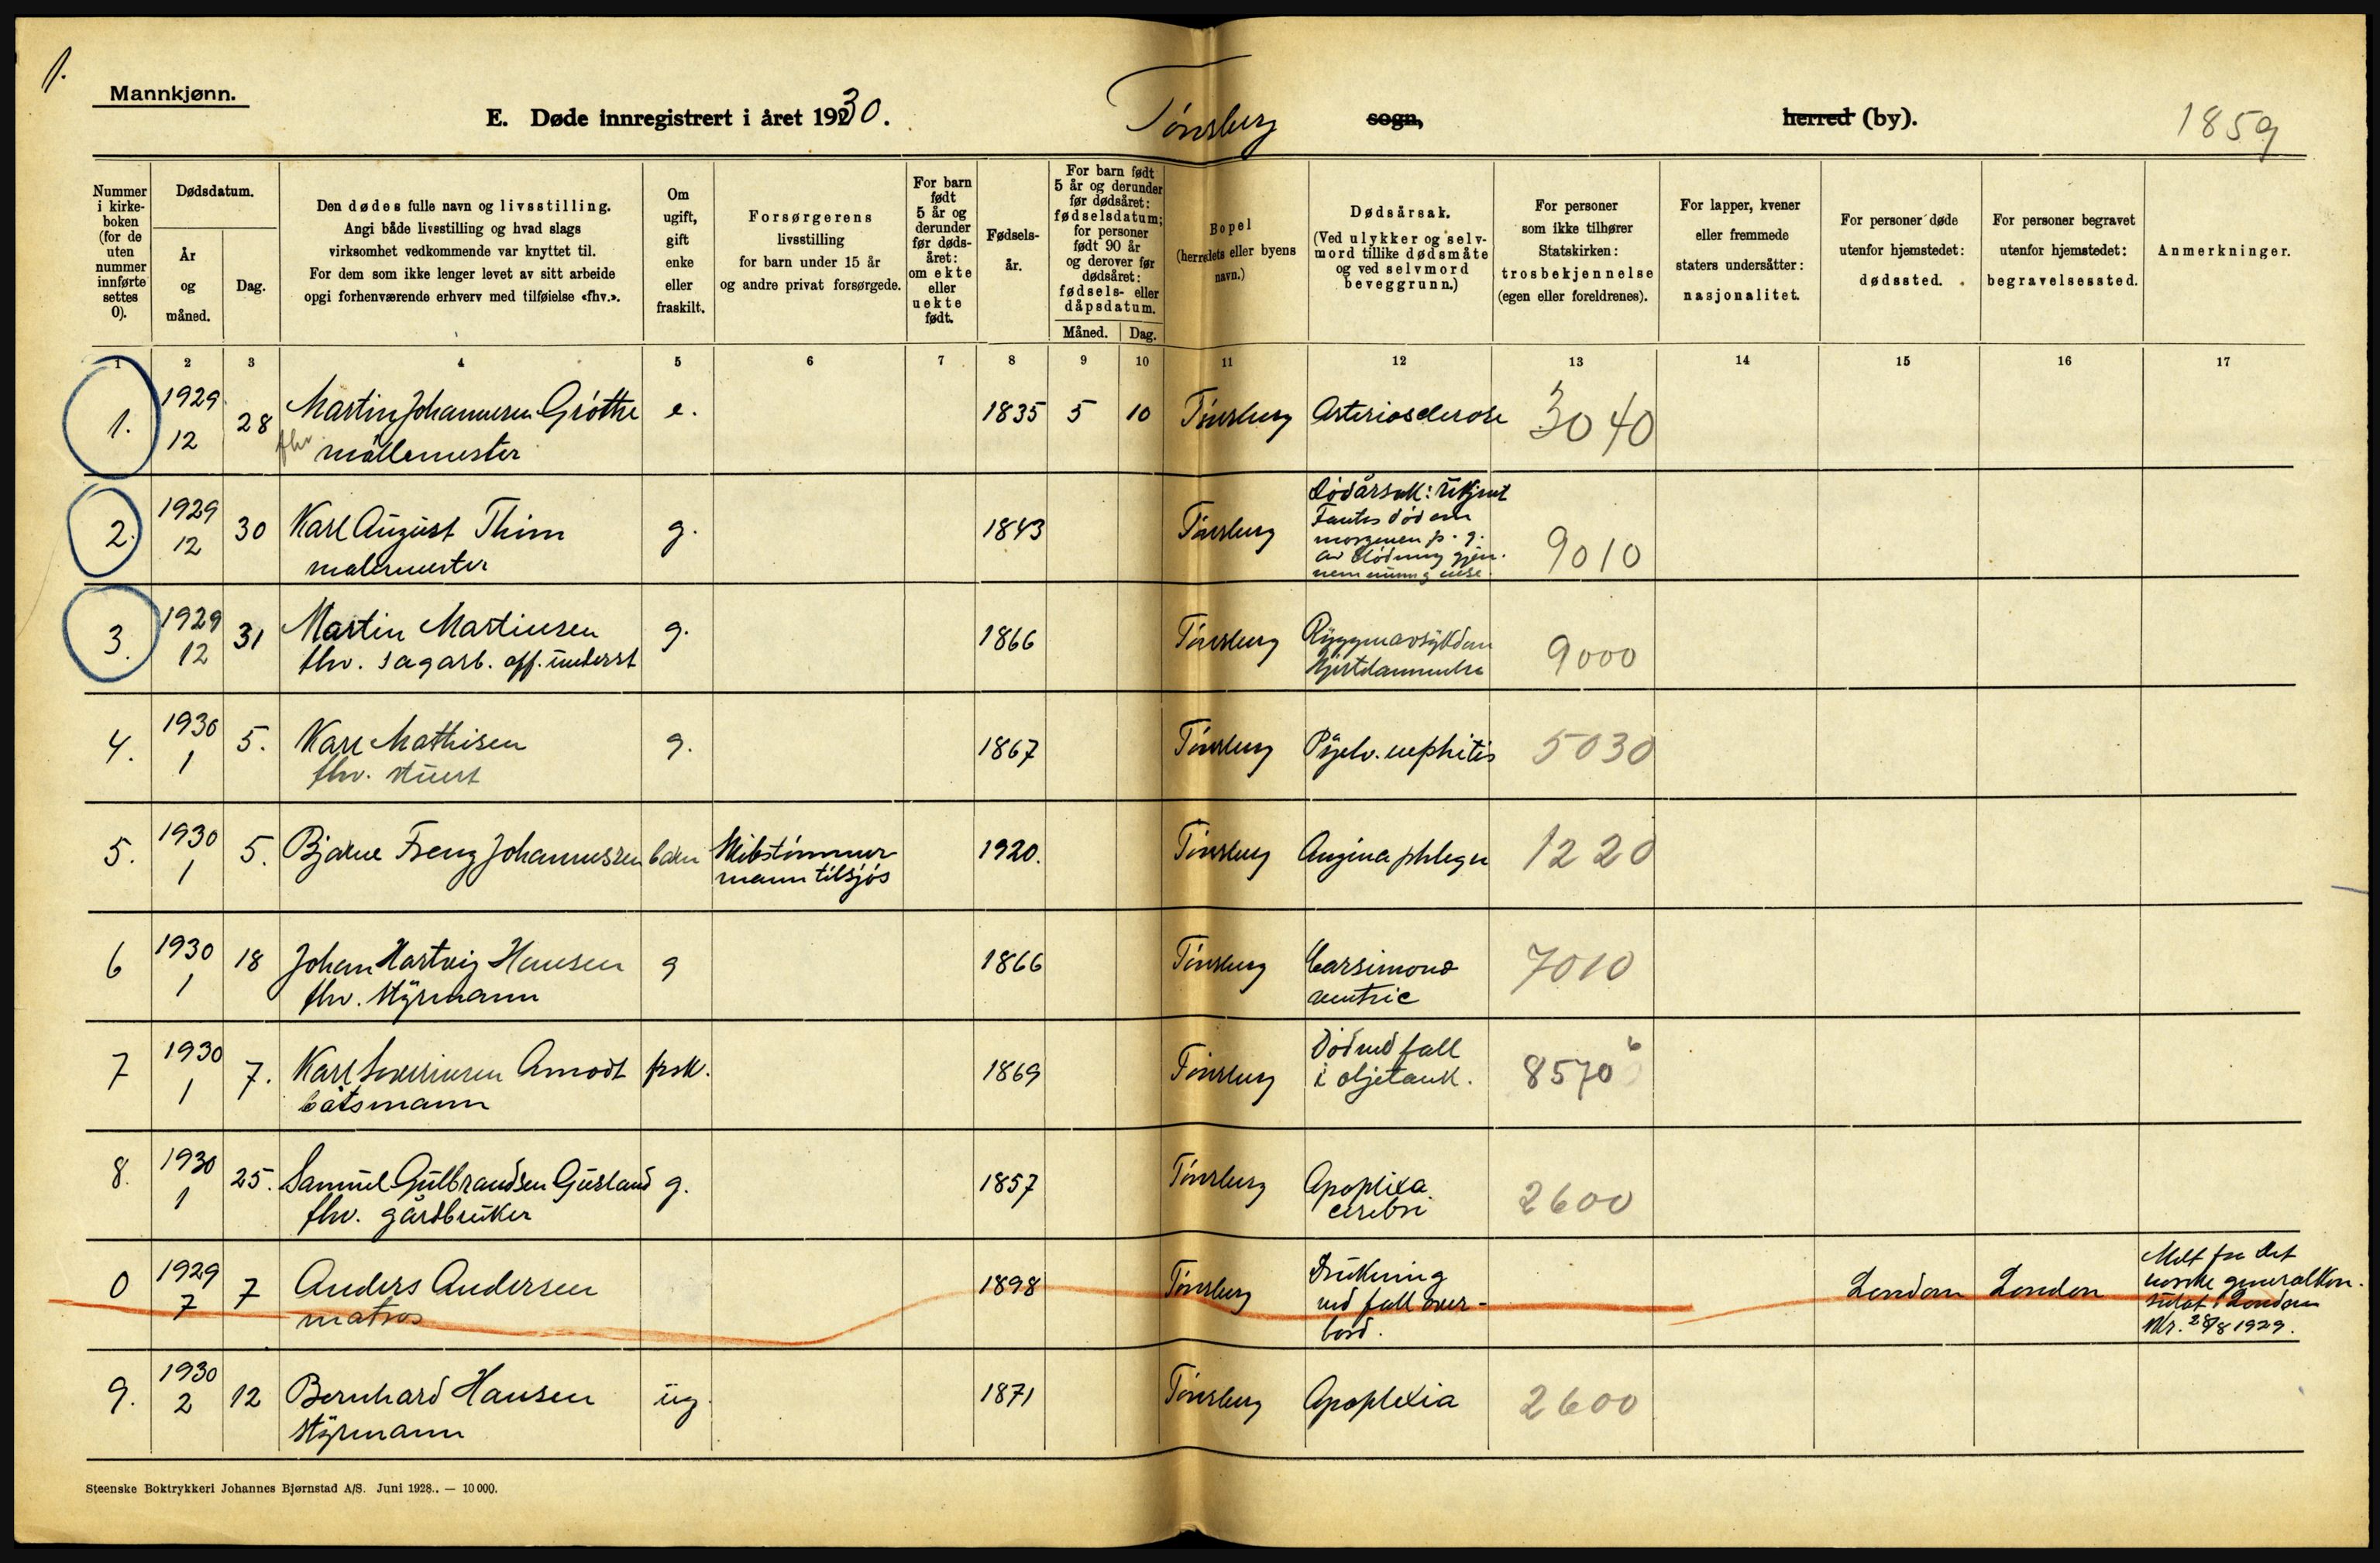 1.
Mannkjønn.
E. Døde innregistrert i året 1930. Tønsberg sogn, herred (by). 1859
Nummer i kirkeboken (for de uten nummer innførte settes 0).
Dødsdatum.
År og måned.
Dag.
Den dødes fulle navn og livsstilling.
Angi både livsstilling og hvad slags
virksomhet vedkommende var knyttet til.
For dem som ikke lenger levet av sitt arbeide
opgi forhenværende erhverv med tilføielse «fhv.».
Om ugift, gift enke eller fraskilt.
Forsørgerens
livsstilling
for barn under 15 år
og andre privat forsørgede.
For barn født 5 år og derunder før dødsåret: om ekte eller uekte født.
Fødselsår.
For barn født 5 år og derunder før dødsåret: fødselsdatum; for personer født 90 år og derover før dødsåret: fødsels- eller dåpsdatum.
Måned. Dag.
Bopel
(herredets eller byens
navn.)
Dødsårsak.
(Ved ulykker og selvmord tillike dødsmåte og ved selvmord beveggrunn.)
For personer
som ikke tilhører
Statskirken:
trosbekjennelse
(egen eller foreldrenes).
For lapper, kvener
eller fremmede
staters undersåtter:
nasjonalitet.
For personer døde
utenfor hjemstedet:
dødssted.
For personer begravet
utenfor hjemstedet:
begravelsessted.
Anmerkninger.
1 2 3 4 5 6 7 8 9 10 11 12 13 14 15 16 17
1. 1929 12 28 Martin Johannesen Grøthe e. 1835 5 10 Tønsberg Arteriosclerose 3040
fhv møllemester
2. 1929 12 30 Karl August Thim g. 1843 Tønsberg Dødårsak: Ukjent 9010
malermester
Fantes død om
morgenen p. g.
av blødning gjen-
nem munn g nese.
3. 1929 12 31 Martin Martinsen g. 1866 Tønsberg Ryggmarvsykdom 9000
fhv. sagarb. off. underst
Hjertelammelse
4. 1930 1 5. Karl Mathisen g. 1867 Tønsberg Pyelv. nephitis 5030
fhv. stuert
5. 1930 1 5. Bjarne Freng Johannessen barn Skibstømmer 1920. Tønsberg Angina phlegn 1220
mann tilsjøs
6 1930 1 18 Johan Hartvig Hansen g 1866 Tønsberg Carsimona 7010
fhv. styrmann
ventric
7 1930 1 7. Karl Severinsen Amodt frsk. 1869 Tønsberg Død ved fall 8570 6
båtsmann
i oljetank.
8. 1930 1 25. Samuel Gulbrandsen Gusland g. 1857 Tønsberg Apoplixa 2600
fhv. gårdbruker
cerebri
0 1929 7 7 Anders Andersen 1898 Tønsberg Drukning London London
matros
ved fall over-
bord.
Melt fra det
norske generalkon-
sulat i London
skr. 28/8 1929.
9. 1930 2 12 Bernhard Hansen ug 1871 Tønsberg Apoplexia 2600
styrmann
Steenske Boktrykkeri Johannes Bjørnstad A/S. Juni 1928.. — 10 000.